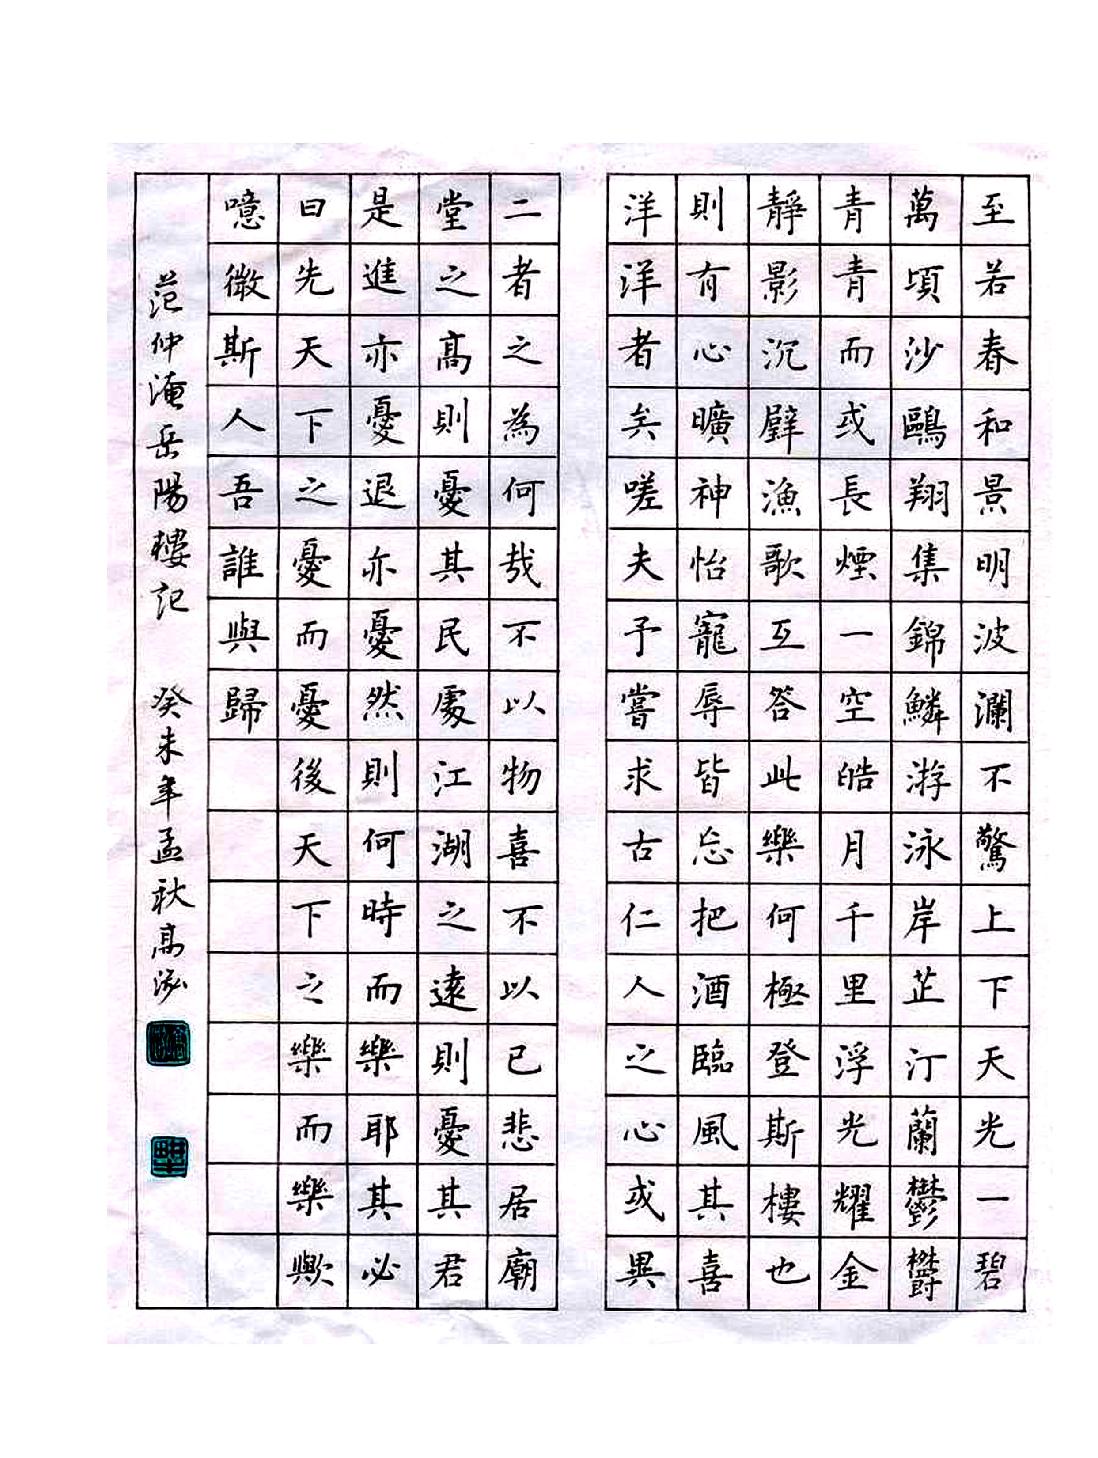 至若春和景明波瀾不驚上下天光一碧
萬頃沙鷗翔集錦鱗游泳岸芷汀蘭鬱鬱
青青而或長煙一空皓月千里浮光耀金
靜影沉璧漁歌互答此樂何極登斯樓也
則有心曠神怡寵辱皆忘把酒臨風其喜
洋洋者矣嗟夫予嘗求古仁人之心或異
二者之為何哉不以物喜不以己悲居廟
堂之高則憂其民處江湖之遠則憂其君
是進亦憂退亦憂然則何時而樂耶其必
曰先天下之憂而憂後天下之樂而樂歟
噫微斯人吾誰與歸
范仲淹岳陽樓記 癸未年孟秋高泓